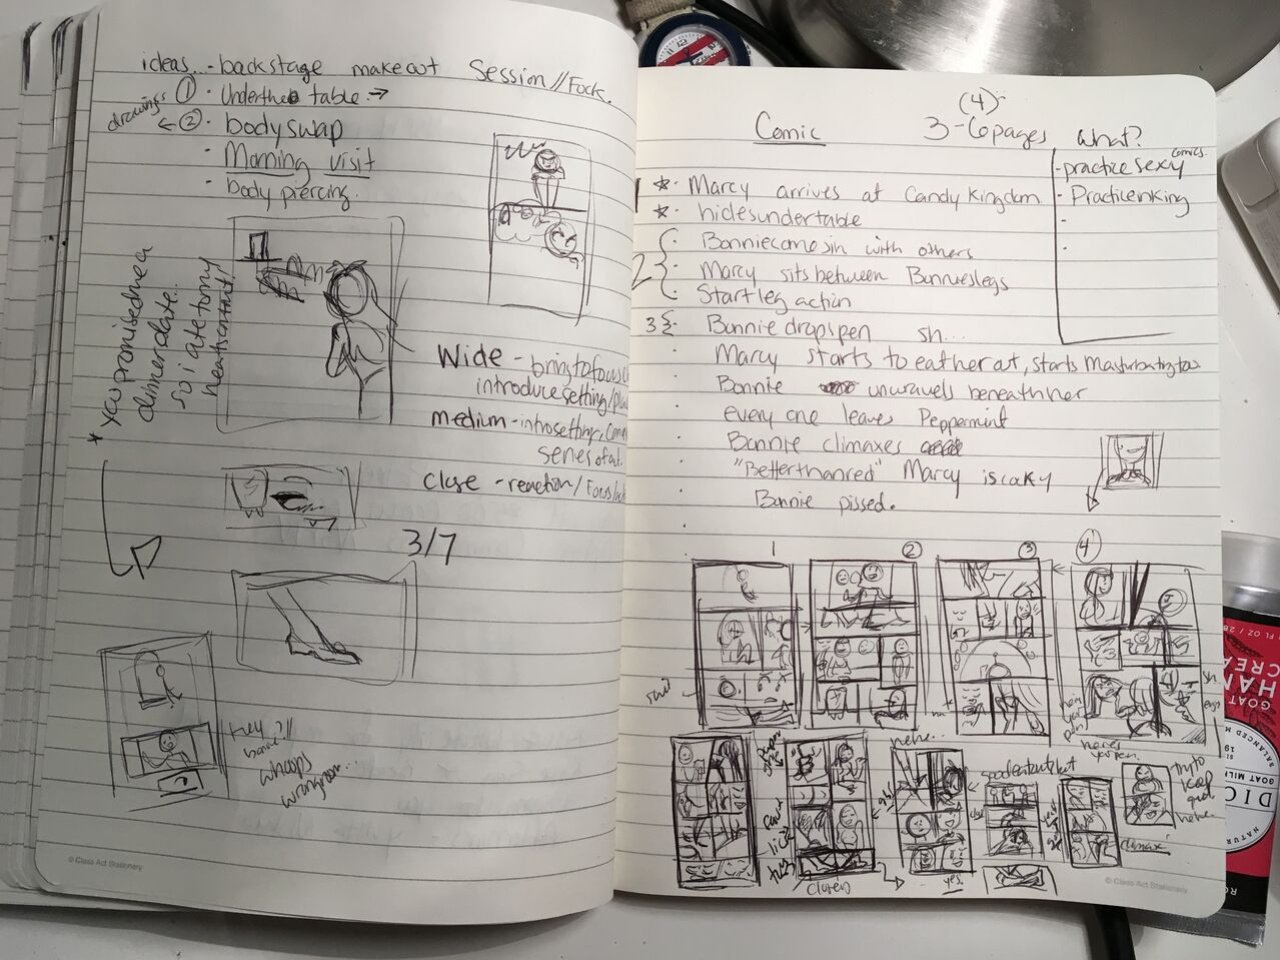 ideas.. - backstage makeout Session // Fuck.
drawings ① · Underthe table. →
← ② · bodyswap
· Morning visit
· body piercing.
* you promised me a
dinner date.
so i ate to my
Wide - bring to focus
introduce setting/
medium - intro setting,
series of
Close - reaction/
3/7
Hey
Bonnie?!!
whoops
wrong room...
© Class Act Stationery
(4)
Comic 3-6 pages What?
- practice sexy comics.
- Practice inking
1 * · Marcy arrives at Candy Kingdom
* · hides under table
2 { · Bonnie comes in with others
· Marcy sits between Bonnies legs
· Start leg action
3 { · Bonnie drops pen sh...
· Marcy starts to eat her out, starts Masturbating too
· Bonnie unravels beneath her
· every one leaves Peppermint
· Bonnie climaxes
· "Better than red" Marcy is cocky
· Bonnie pissed.
1 ② ③ ④
hehe..
try to
keep
quiet
hehe
climax
yes
© Class Act Stationery
FL OZ / 28
GOAT
HAN
CREA
BALANCED M
GOAT MIL
DIC
NATUR